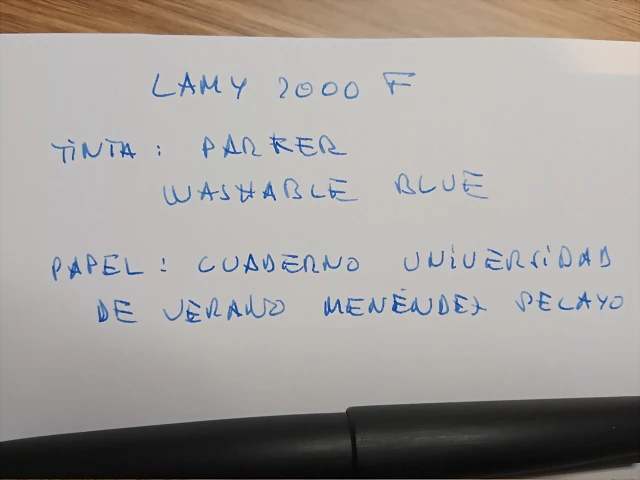 LAMY 2000 F
TINTA: PARKER
WASHABLE BLUE
PAPEL: CUADERNO UNIVERSIDAD
DE VERANO MENÉNDEZ PELAYO